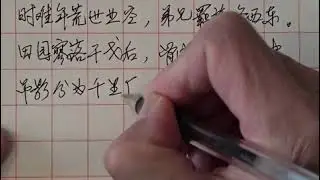 时难年荒世业空，弟兄羁旅各西东。
田园寥落干戈后，骨
吊影分为千里